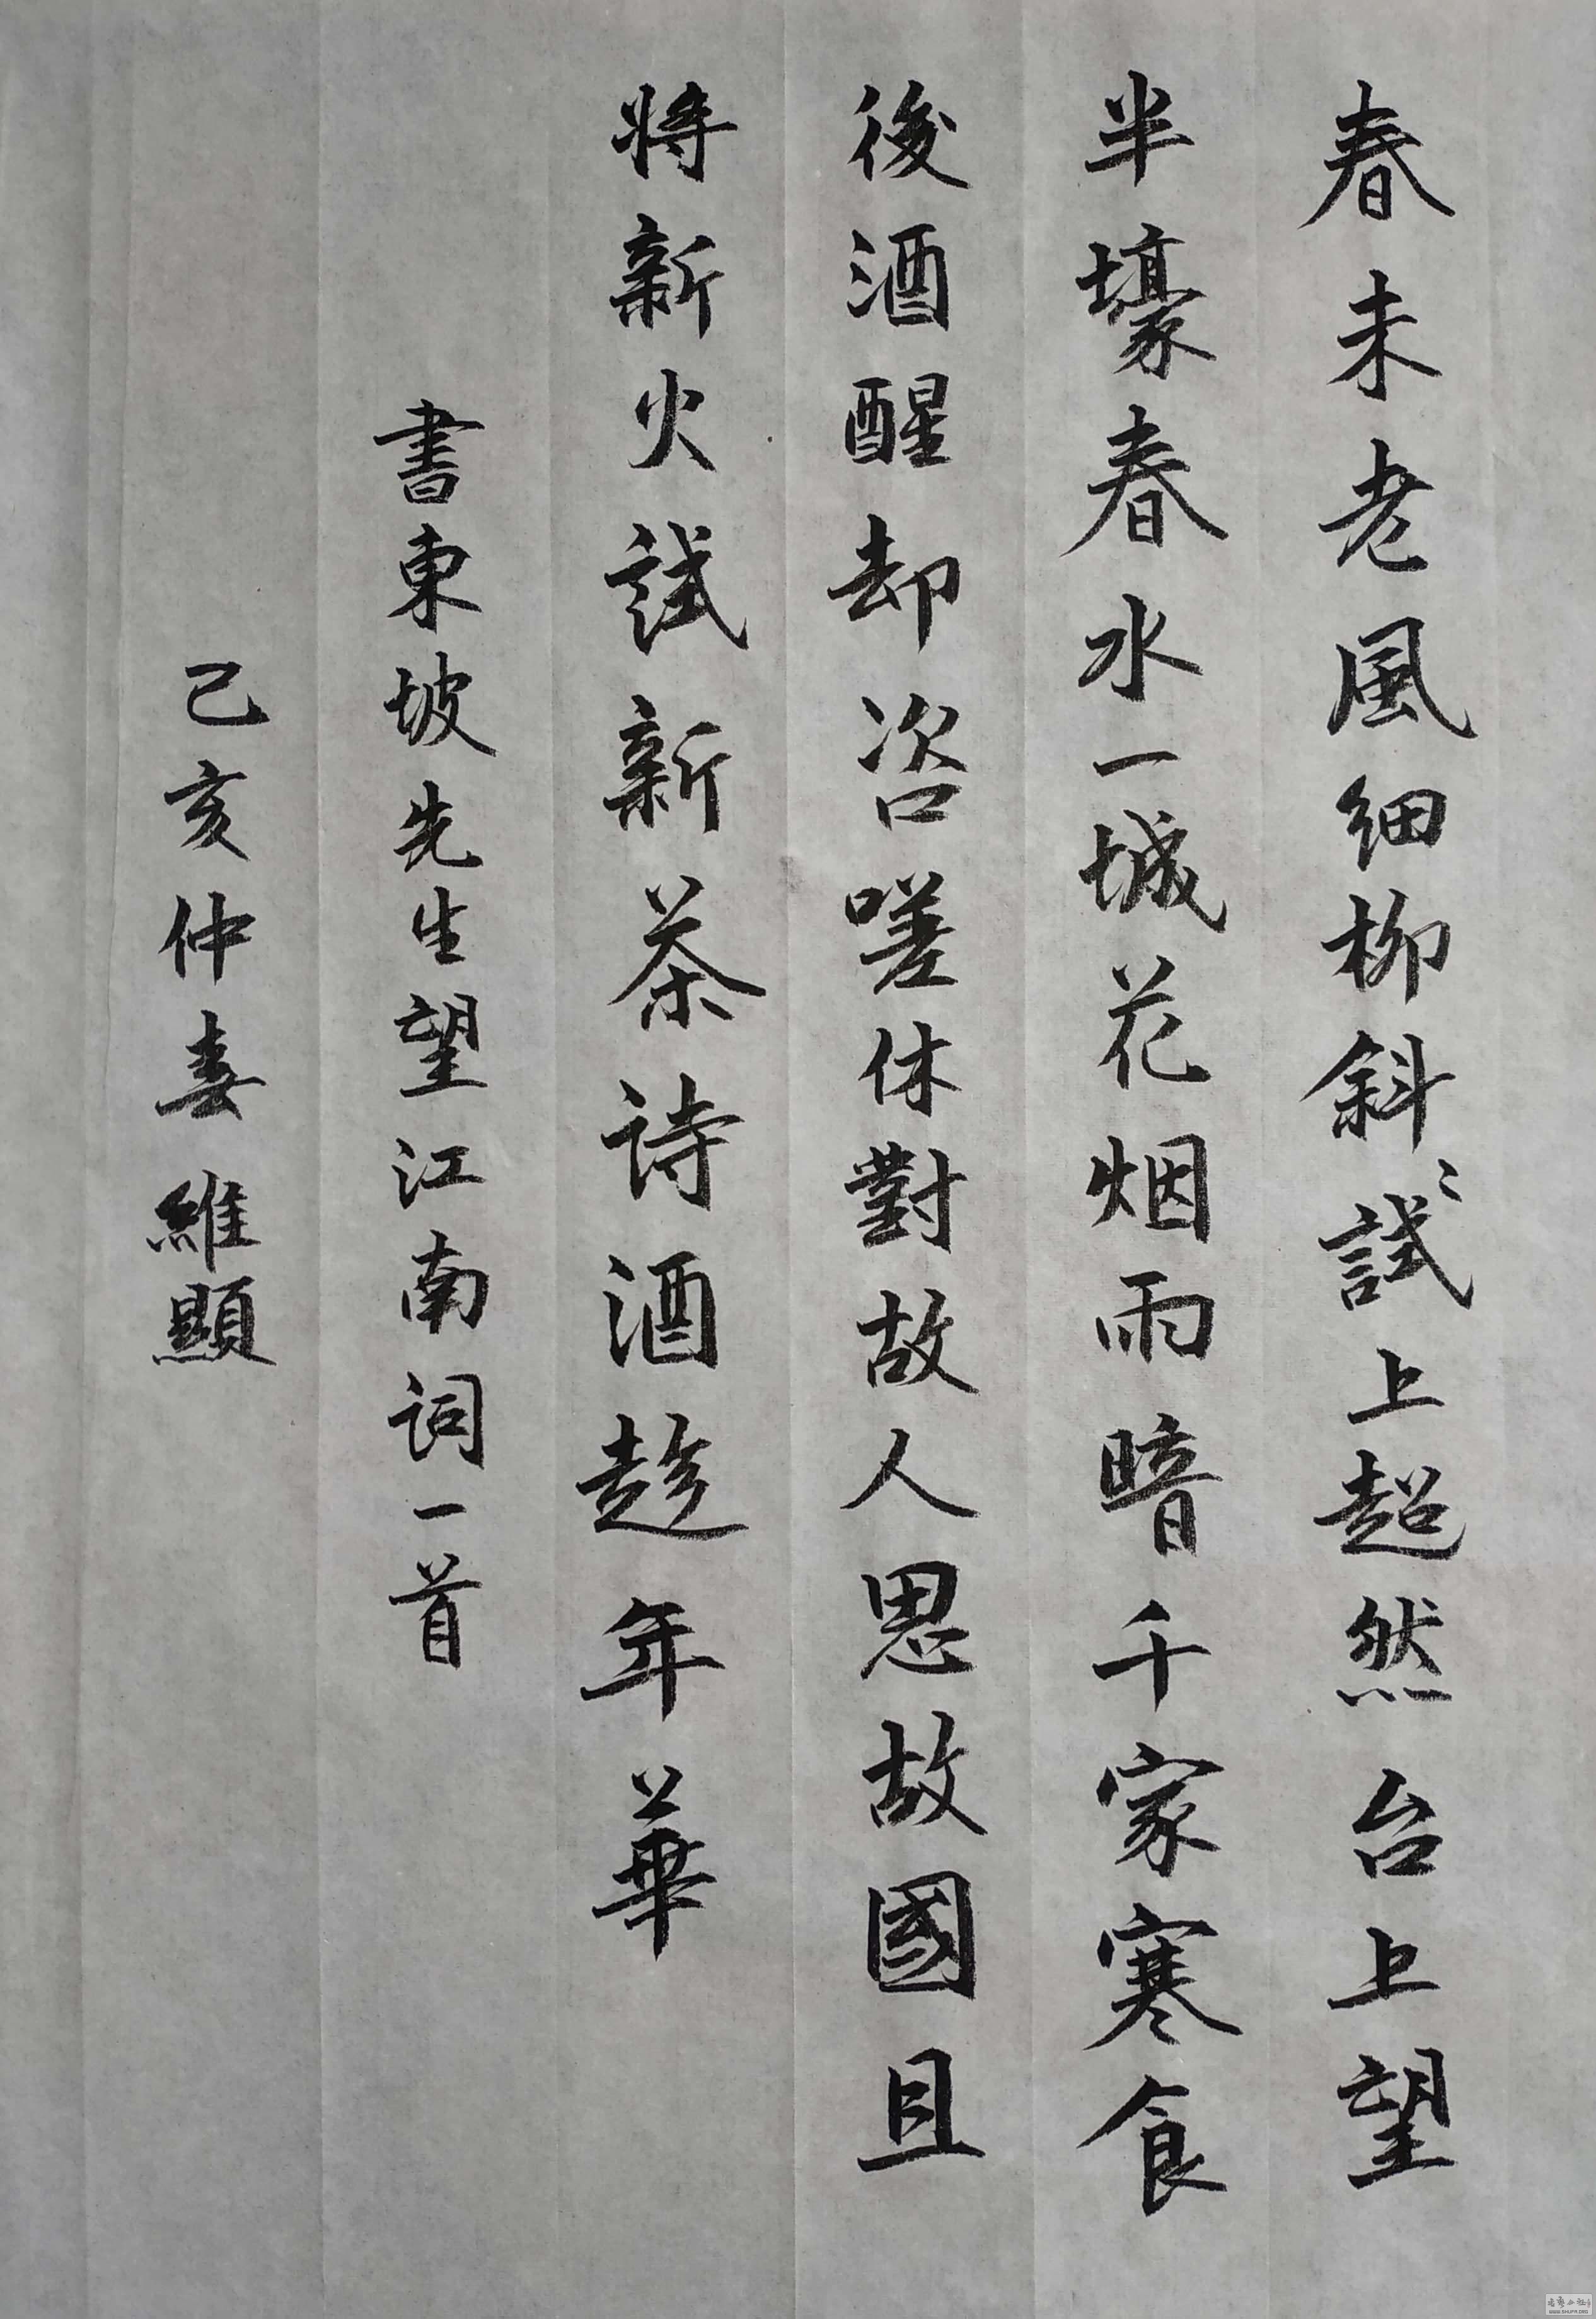 春未老風細柳斜〻試上超然台上望
半壕春水一城花烟雨暗千家寒食
後酒醒却咨嗟休對故人思故國且
將新火試新茶詩酒趁年華
書東坡先生望江南詞一首
己亥仲春維顯